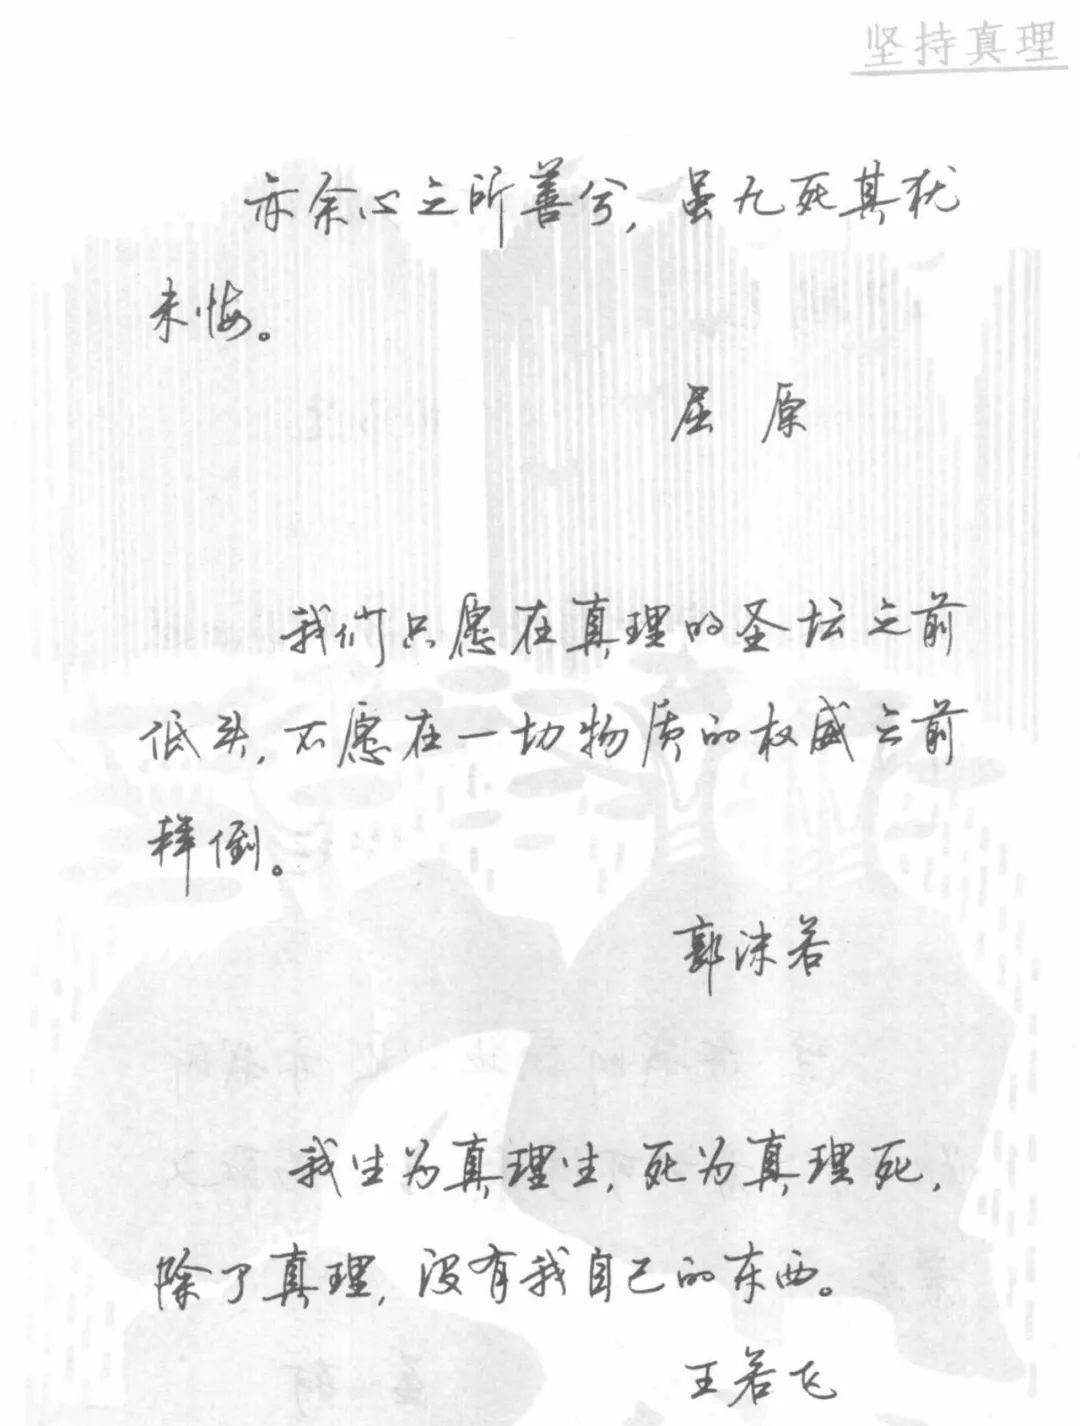 坚持真理
亦余心之所善兮，虽九死其犹
未悔。
屈原
我们只愿在真理的圣坛之前
低头，不愿在一切物质的权威之前
拜倒。
郭沫若
我生为真理生，死为真理死，
除了真理，没有我自己的东西。
王若飞